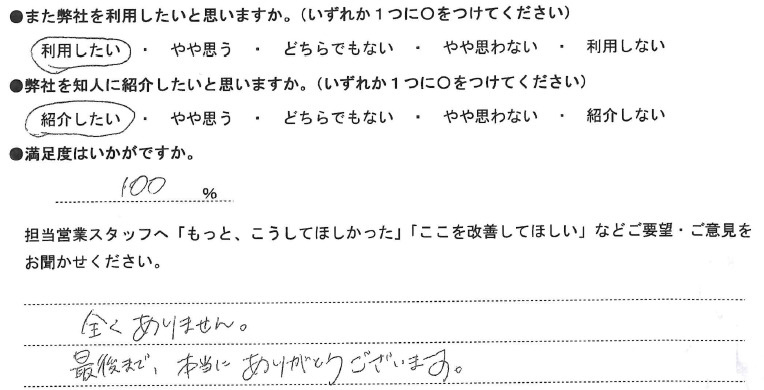 ●また弊社を利用したいと思いますか。（いずれか１つに〇をつけてください）
利用したい ・ やや思う ・ どちらでもない ・ やや思わない ・ 利用しない
●弊社を知人に紹介したいと思いますか。（いずれか１つに〇をつけてください）
紹介したい ・ やや思う ・ どちらでもない ・ やや思わない ・ 紹介しない
●満足度はいかがですか。
100 %
担当営業スタッフへ「もっと、こうしてほしかった」「ここを改善してほしい」などご要望・ご意見を
お聞かせください。
全くありません。
最後まで、本当にありがとうございます。